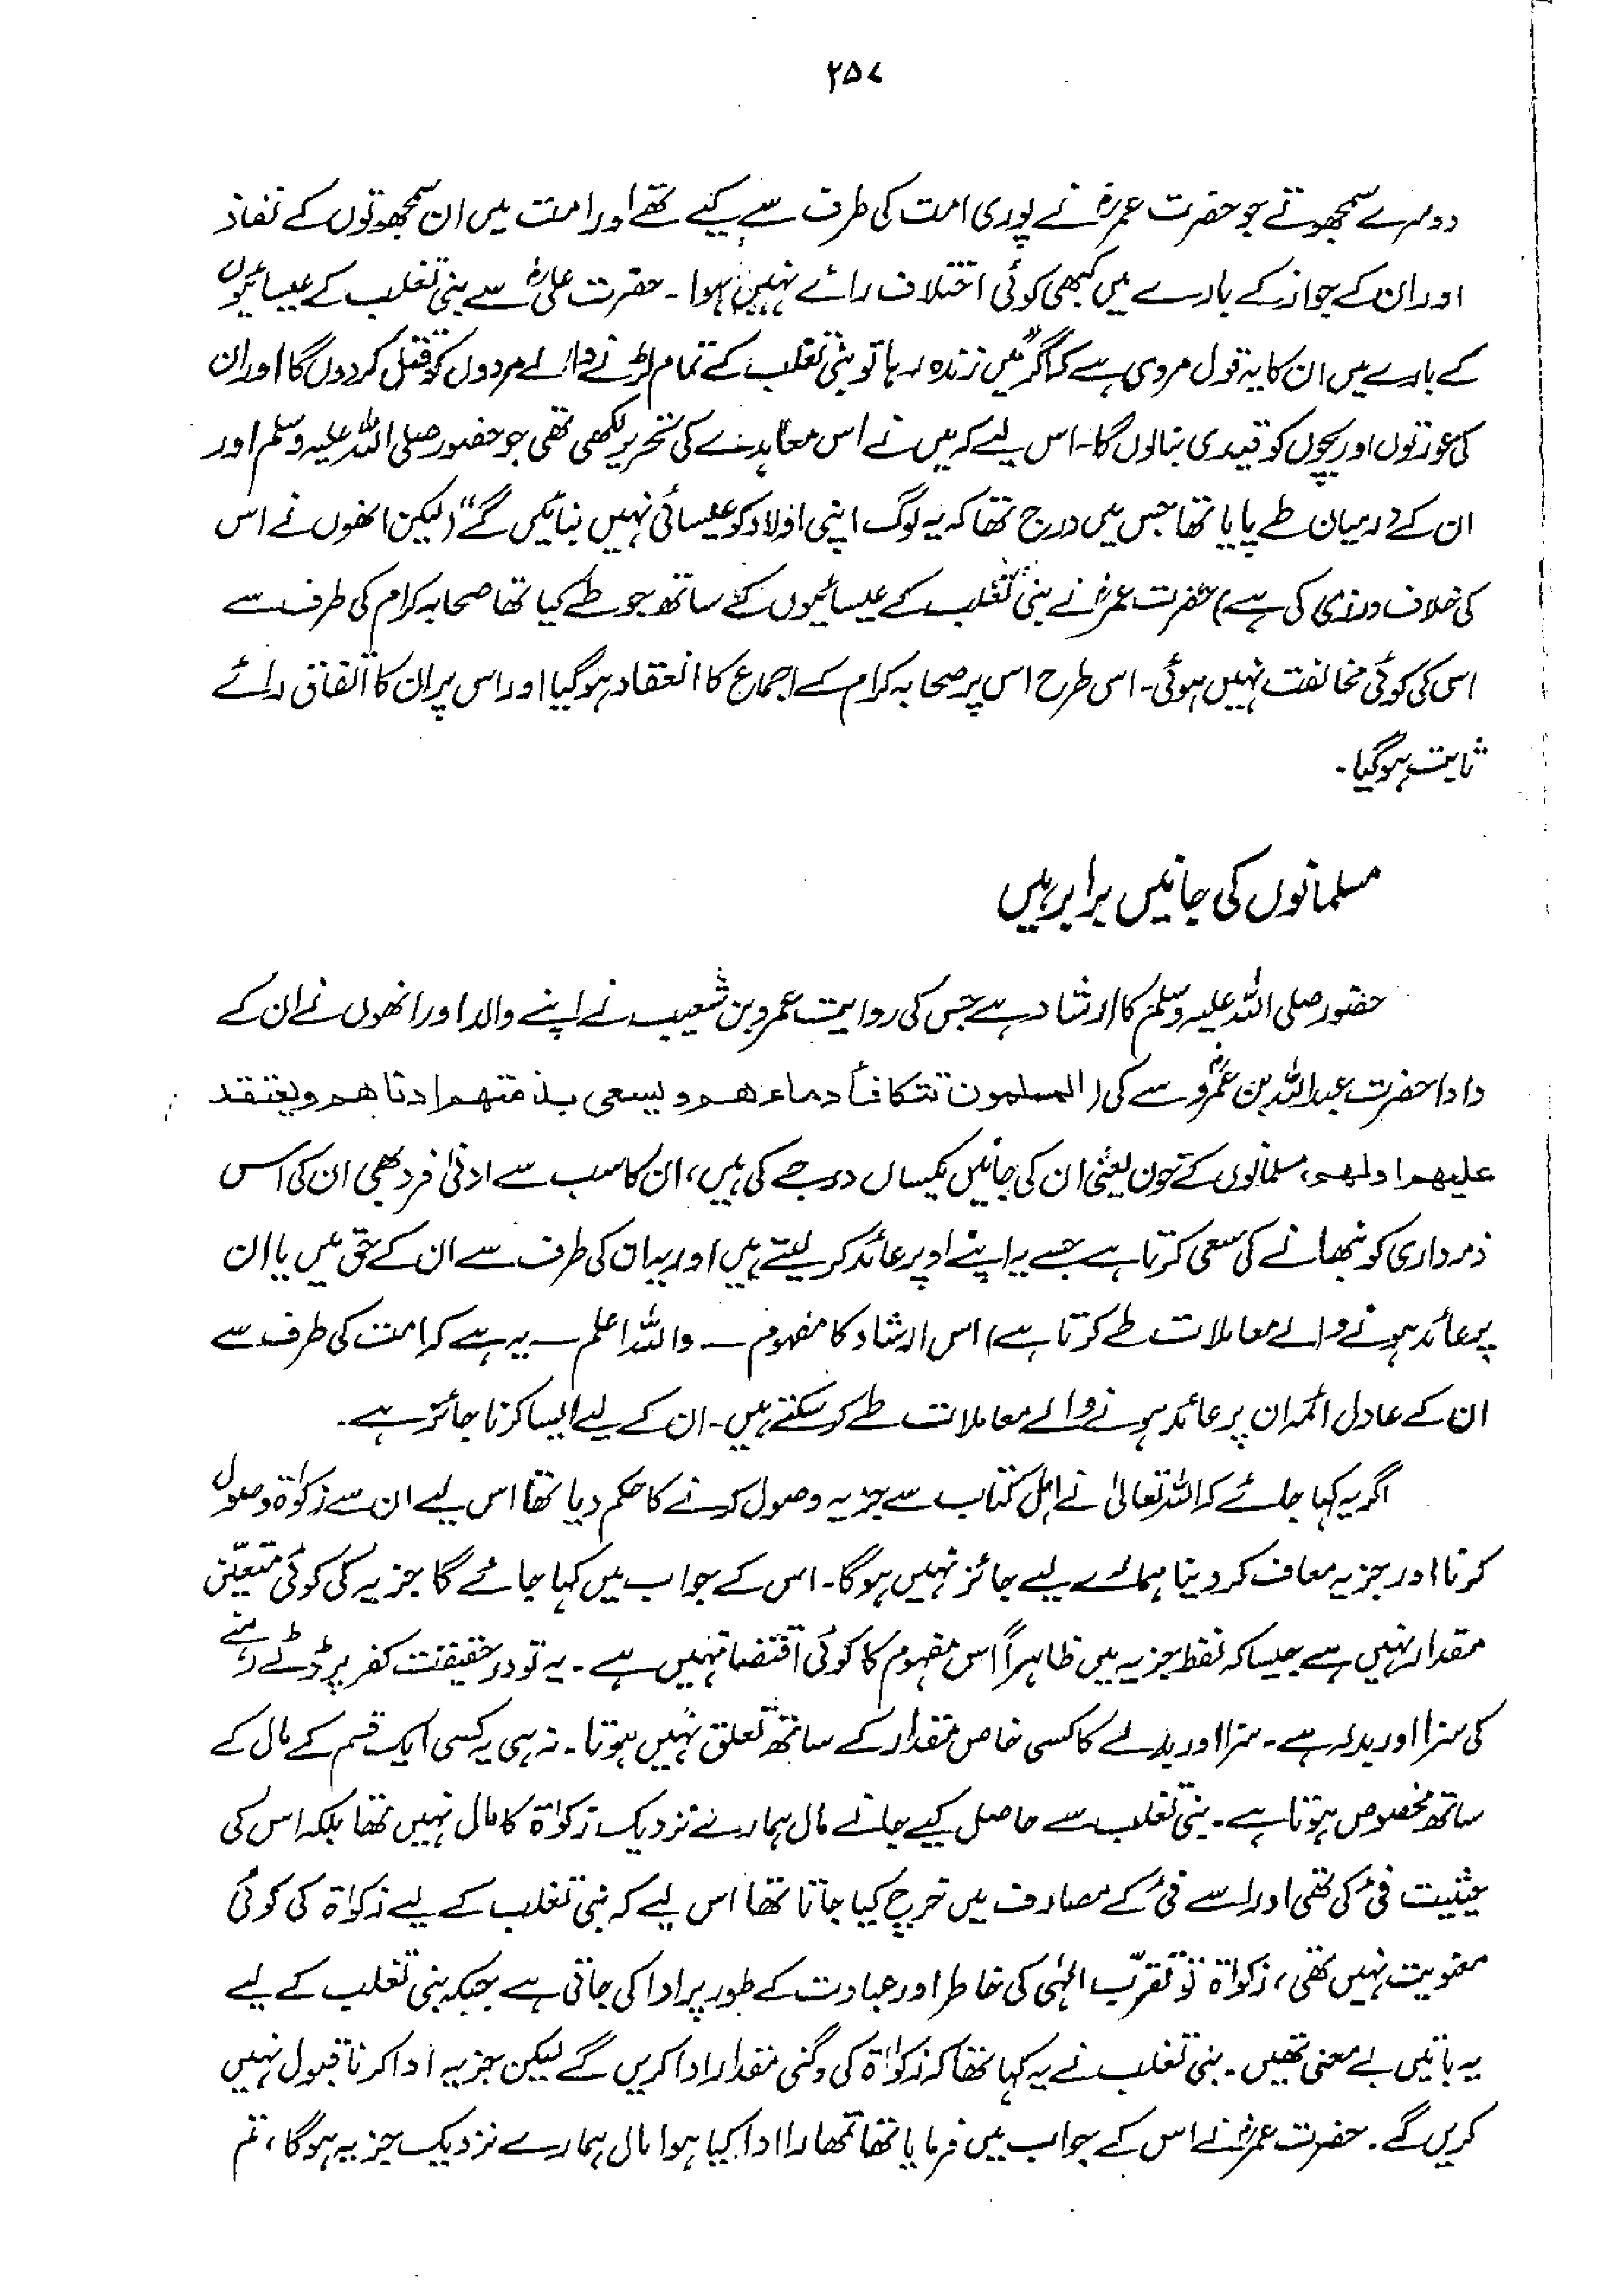 ۲۵۷
دوسرے سمجھوتے جو حضرت عمرؓ نے پوری امت کی طرف سے کیے تھے اور امت میں ان سمجھوتوں کے نفاذ
اور ان کے جواز کے بارے میں کبھی کوئی اختلاف رائے نہیں ہوا۔ حضرت علیؓ سے بنی تغلب کے عیسائیوں
کے بارے میں ان کا یہ قول مروی ہے کہ اگر "میں زندہ رہا تو بنی تغلب کے تمام لڑنے والے مردوں کو قتل کردوں گا اور ان
کی عورتوں اور بچوں کو قیدی بنالوں گا۔ اس لیے کہ میں نے اس معاہدے کی تحریر لکھی تھی جو حضور صلی اللہ علیہ وسلم اور
ان کے درمیان طے پایا تھا جس میں درج تھا کہ یہ لوگ اپنی اولاد کو عیسائی نہیں بنائیں گے" (لیکن انھوں نے اس
کی خلاف ورزی کی ہے) حضرت عمرؓ نے بنی تغلب کے عیسائیوں کے ساتھ جو طے کیا تھا صحابہ کرام کی طرف سے
اس کی کوئی مخالفت نہیں ہوئی۔ اس طرح اس پر صحابہ کرام کے اجماع کا انعقاد ہوگیا اور اس پر ان کا اتفاق رائے
ثابت ہوگیا۔
مسلمانوں کی جانیں برابر ہیں
حضور صلی اللہ علیہ وسلم کا ارشاد ہے جس کی روایت عمرو بن شعیب نے اپنے والد اور انھوں نے ان کے
دادا حضرت عبداللہ بن عمروؓ سے کی (المسلمون تتکافأ دماءھم و یسعی بذمتھم ادناھم ویعتقد
علیھم اولھم، مسلمانوں کے خون یعنی ان کی جانیں یکساں درجے کی ہیں، ان کا سب سے ادنیٰ فرد بھی ان کی اس
ذمہ داری کو نبھانے کی سعی کرتا ہے جسے یہ اپنے اوپر عائد کرلیتے ہیں اور یہ ان کی طرف سے ان کے حق میں یا ان
پر عائد ہونے والے معاملات طے کرتا ہے) اس ارشاد کا مفہوم ــ واللہ اعلم ــ یہ ہے کہ امت کی طرف سے
ان کے عادل ائمہ ان پر عائد ہونے والے معاملات طے کرسکتے ہیں۔ ان کے لیے ایسا کرنا جائز ہے۔
اگر یہ کہا جائے کہ اللہ تعالیٰ نے اہل کتاب سے جزیہ وصول کرنے کا حکم دیا تھا اس لیے ان سے زکوٰۃ وصول
کرنا اور جزیہ معاف کردینا ہمارے لیے جائز نہیں ہوگا۔ اس کے جواب میں کہا جائے گا جزیہ کی کوئی متعیّن
مقدار نہیں ہے جیسا کہ لفظ جزیہ میں ظاہراً اس مفہوم کا کوئی اقتضا نہیں ہے۔ یہ تو درحقیقت کفر پر ڈٹے رہنے
کی سزا اور بدلہ ہے۔ سزا اور بدلے کا کسی خاص مقدار کے ساتھ تعلق نہیں ہوتا۔ نہ ہی یہ کسی ایک قسم کے مال کے
ساتھ مخصوص ہوتا ہے۔ بنی تغلب سے حاصل کیے جانے مال ہمارے نزدیک زکوٰۃ کا مال نہیں تھا بلکہ اس کی
حیثیت فئ کی تھی اور اسے فئ کے مصارف میں خرچ کیا جاتا تھا اس لیے کہ بنی تغلب کے لیے زکوٰۃ کی کوئی
معنویت نہیں تھی، زکوٰۃ تو تقرّب الہٰی کی خاطر اور عبادت کے طور پر ادا کی جاتی ہے جبکہ بنی تغلب کے لیے
یہ باتیں بے معنی تھیں۔ بنی تغلب نے یہ کہا تھا کہ زکوٰۃ کی دگنی مقدار ادا کریں گے لیکن جزیہ ادا کرنا قبول نہیں
کریں گے۔ حضرت عمرؓ نے اس کے جواب میں فرمایا تھا تمھارا ادا کیا ہوا مال ہمارے نزدیک جزیہ ہوگا، تم